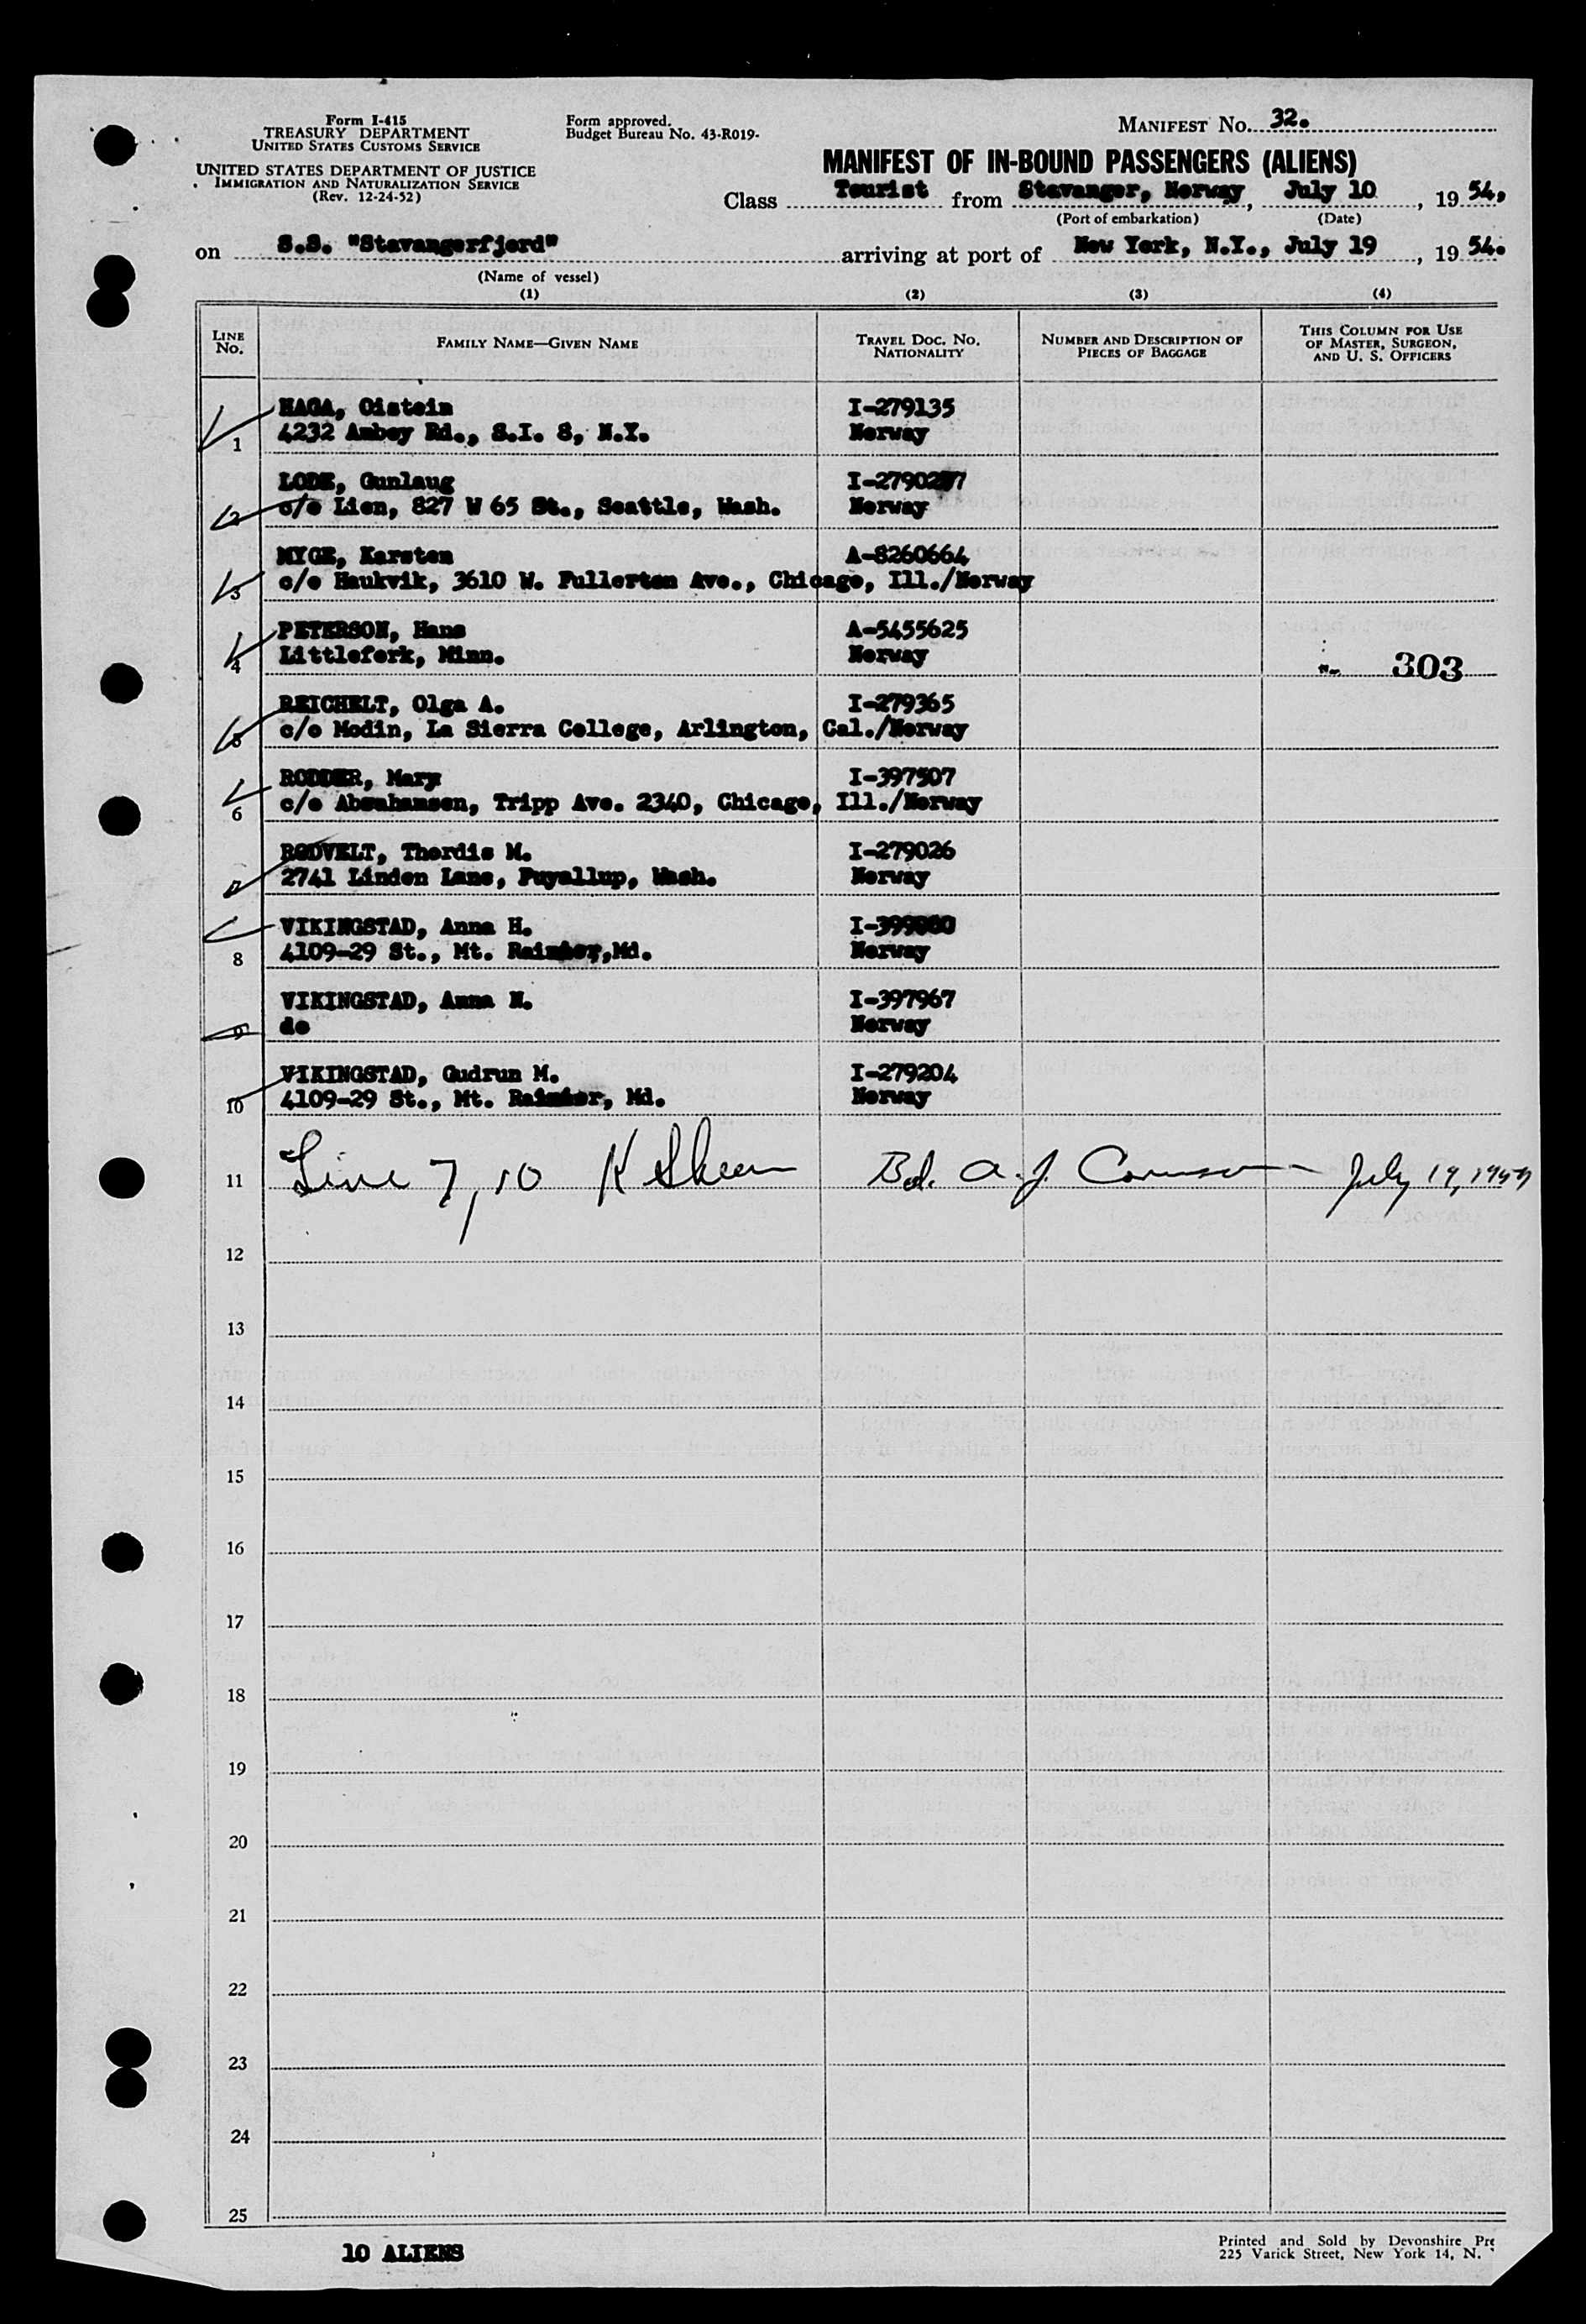 Form I-415
TREASURY DEPARTMENT
UNITED STATES CUSTOMS SERVICE
UNITED STATES DEPARTMENT OF JUSTICE
IMMIGRATION AND NATURALIZATION SERVICE
(Rev. 12-24-52)
Form approved.
Budget Bureau No. 43-R019-
MANIFEST No. 32.
MANIFEST OF IN-BOUND PASSENGERS (ALIENS)
Class Tourist from Stavanger, Norway, July 10, 19 54,
(Port of embarkation) (Date)
on S.S. "Stavangerfjord" arriving at port of New York, N.Y., July 19, 19 54.
(Name of vessel)
(1) (2) (3) (4)
LINE No. FAMILY NAME—GIVEN NAME TRAVEL DOC. No. NATIONALITY NUMBER AND DESCRIPTION OF PIECES OF BAGGAGE THIS COLUMN FOR USE OF MASTER, SURGEON, AND U. S. OFFICERS
HAGA, Oistein I-279135
1 4232 Amboy Rd., S.I. 8, N.Y. Norway
LODE, Gunlaug I-2790
2 c/o Lien, 827 W 65 St., Seattle, Wash. Norway
MYGE, Karsten A-8260664
3 c/o Haukvik, 3610 W. Fullerton Ave., Chicago, Ill./Norway
PETERSON, Hans A-5455625
4 Littlefork, Minn. Norway 303
REICHELT, Olga A. I-279365
5 c/o Modin, La Sierra College, Arlington, Cal./Norway
RODDER, Mary I-397507
6 c/o Abrahamsen, Tripp Ave. 2340, Chicago, Ill./Norway
RODVELT, Thordis M. I-279026
7 2741 Linden Lane, Puyallup, Wash. Norway
VIKINGSTAD, Anna H.
8 4109-29 St., Mt. Rainier, Md. Norway
VIKINGSTAD, Anna N. I-397967
9 do Norway
VIKINGSTAD, Gudrun M. I-279204
10 4109-29 St., Mt. Rainier, Md. Norway
11 Line 7, 10 K Bd. A. J. July 19, 1954
12
13
14
15
16
17
18
19
20
21
22
23
24
25
10 ALIENS
Printed and Sold by Devonshire Pre
225 Varick Street, New York 14, N.